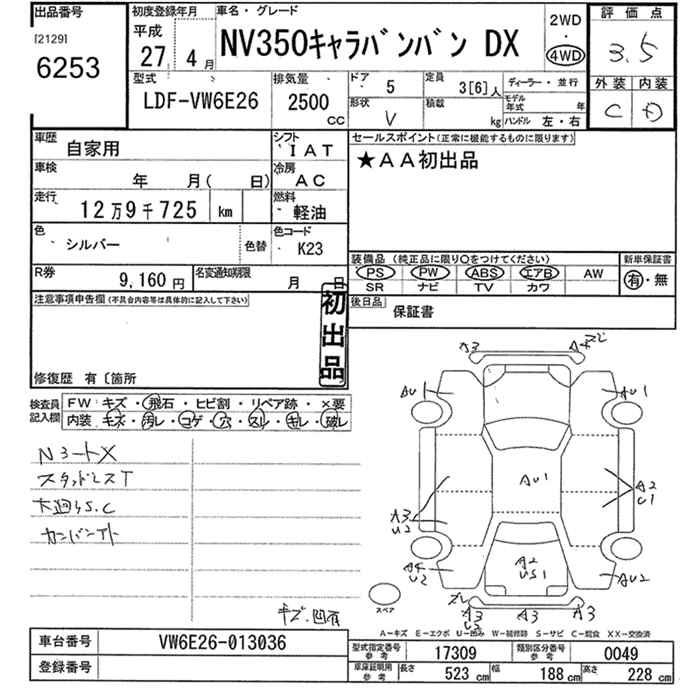 出品番号
[2129]
6253
初度登録年月
平成
27年
4月
車名・グレード
NV350キャラバンバン DX
2WD
・
4WD
評価点
3.5
外装
内装
C
D
型式
LDF-VW6E26
排気量
2500
CC
ドア
5
形状
V
定員
3[6]人
積載
kg
ディーラー・並行
モデル年式
年
ハンドル 左・右
車歴
自家用
シフト
IAT
車検
年 月( 日)
冷房
AC
走行
12万9千725 km
燃料
軽油
色
シルバー
色替
色コード
K23
R券
9,160円
名変通知期限
月 日
セールスポイント(正常に機能するものに限ります)
★AA初出品
装備品 (純正品に限り○をつけてください)
PS
PW
ABS
エアB
AW
SR
ナビ
TV
カワ
新車保証書
有・無
後日品
保証書
注意事項申告欄(不具合内容等は具体的に記入して下さい)
初出品
修復歴 有〔箇所
検査員記入欄
FW:キズ・飛石・ヒビ割・リペア跡・×要
内装:キズ・汚レ・コゲ・穴・スレ・キレ・破レ
スタッドレスT
キズ・凹有
A3
AU1
AU1
AU1
A2
U1
A3
U2
A4
U2
A2
US1
AU2
A3
A3
A3
スペア
A-キズ E-エクボ U-凹み W-補修跡 S-サビ C-腐食 XX-交換済
車台番号
VW6E26-013036
登録番号
型式指定番号
参考
17309
類別区分番号
参考
0049
車庫証明用
参考
長さ
523 cm
幅
188 cm
高さ
228 cm